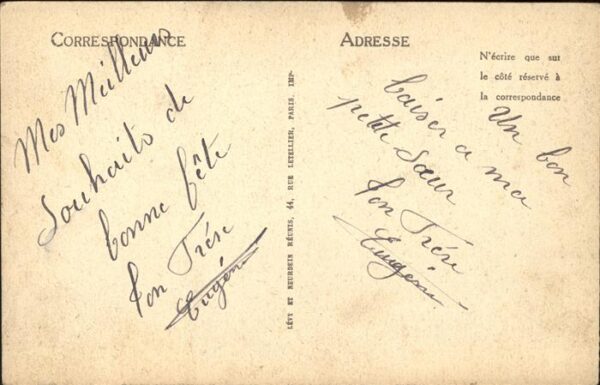 CORRESPONDANCE
Mes Meilleurs
Souhaits de
bonne fête
Ton Frére
Eugéne
LÉVY ET NEURDEIN RÉUNIS, 44, RUE LETELLIER, PARIS. IMP.
ADRESSE
N'écrire que sur
le côté réservé à
la correspondance
Un bon
baiser a ma
petite Sœur
Ton Frére
Eugéne